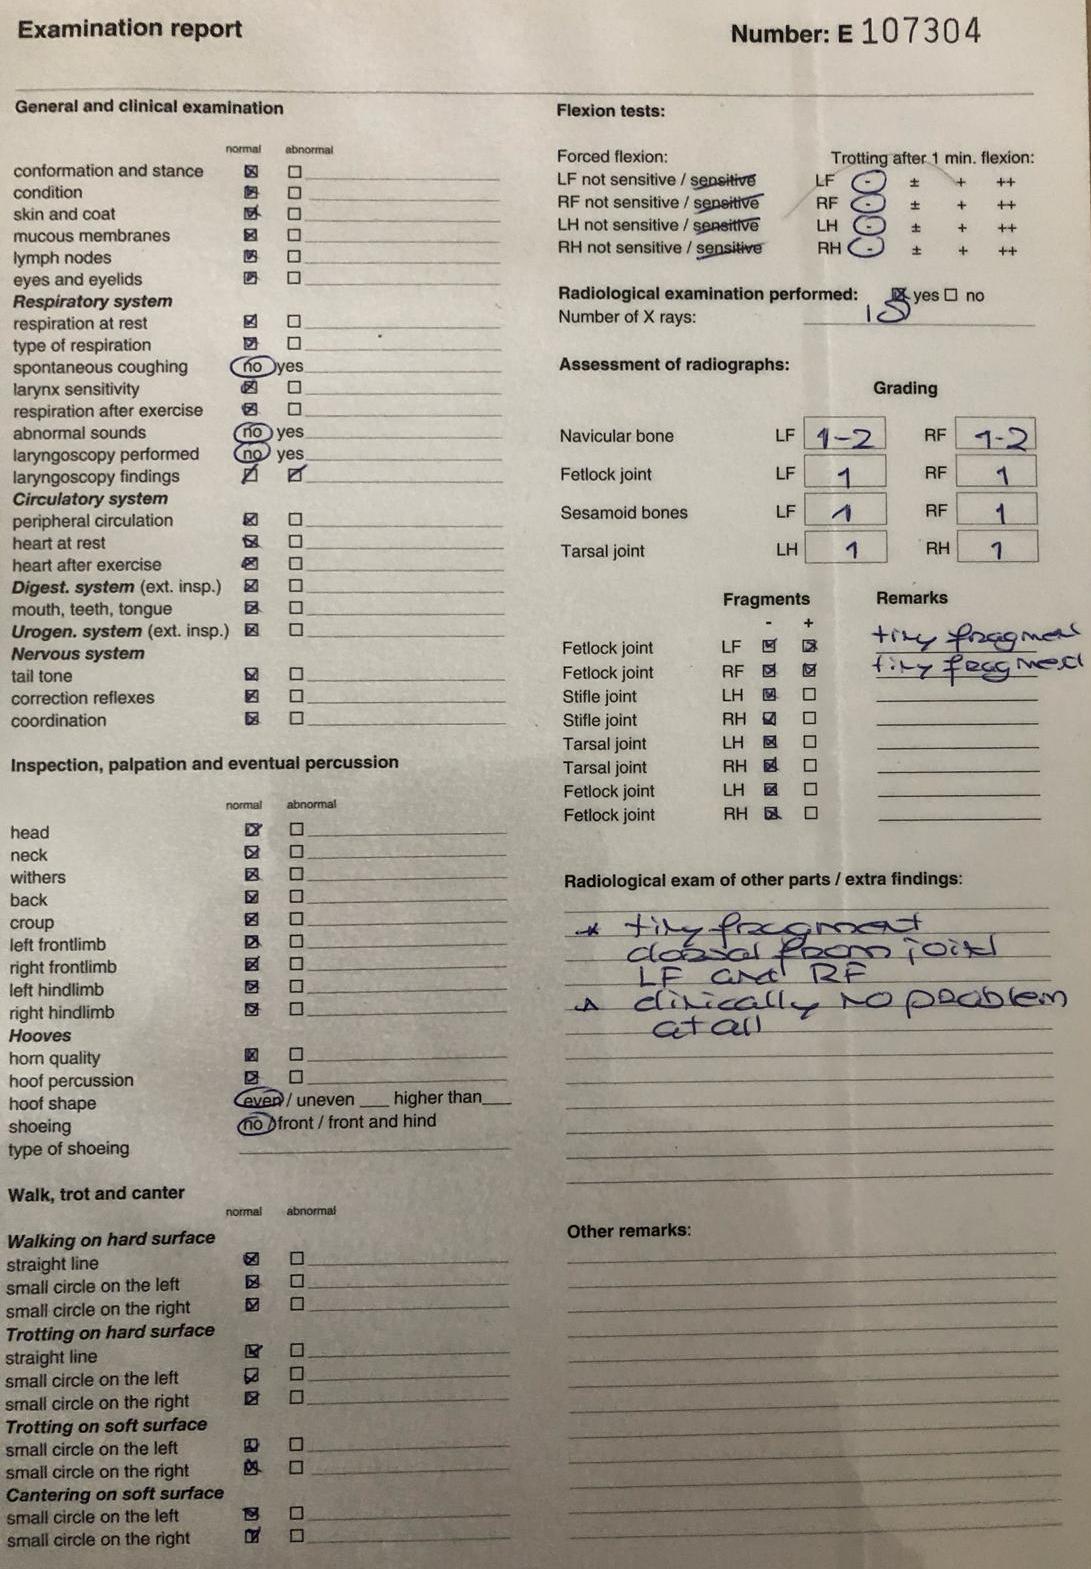 Examination report
Number: E 107304
General and clinical examination
normal abnormal
conformation and stance ☒ ☐
condition ☒ ☐
skin and coat ☒ ☐
mucous membranes ☒ ☐
lymph nodes ☒ ☐
eyes and eyelids ☒ ☐
Respiratory system
respiration at rest ☒ ☐
type of respiration ☒ ☐
spontaneous coughing no yes
larynx sensitivity ☒ ☐
respiration after exercise ☒ ☐
abnormal sounds no yes
laryngoscopy performed no yes
laryngoscopy findings
Circulatory system
peripheral circulation ☒ ☐
heart at rest ☒ ☐
heart after exercise ☒ ☐
Digest. system (ext. insp.) ☒ ☐
mouth, teeth, tongue ☒ ☐
Urogen. system (ext. insp.) ☒ ☐
Nervous system
tail tone ☒ ☐
correction reflexes ☒ ☐
coordination ☒ ☐
Inspection, palpation and eventual percussion
normal abnormal
head ☒ ☐
neck ☒ ☐
withers ☒ ☐
back ☒ ☐
croup ☒ ☐
left frontlimb ☒ ☐
right frontlimb ☒ ☐
left hindlimb ☒ ☐
right hindlimb ☒ ☐
Hooves
horn quality ☒ ☐
hoof percussion ☒ ☐
hoof shape even / uneven ___ higher than___
shoeing no / front / front and hind
type of shoeing
Walk, trot and canter
normal abnormal
Walking on hard surface
straight line ☒ ☐
small circle on the left ☒ ☐
small circle on the right ☒ ☐
Trotting on hard surface
straight line ☒ ☐
small circle on the left ☒ ☐
small circle on the right ☒ ☐
Trotting on soft surface
small circle on the left ☒ ☐
small circle on the right ☒ ☐
Cantering on soft surface
small circle on the left ☒ ☐
small circle on the right ☒ ☐
Flexion tests:
Forced flexion: Trotting after 1 min. flexion:
LF not sensitive / sensitive LF - ± + ++
RF not sensitive / sensitive RF - ± + ++
LH not sensitive / sensitive LH - ± + ++
RH not sensitive / sensitive RH - ± + ++
Radiological examination performed: ☒ yes ☐ no
Number of X rays:
Assessment of radiographs:
Grading
Navicular bone LF 1-2 RF 1-2
Fetlock joint LF 1 RF 1
Sesamoid bones LF 1 RF 1
Tarsal joint LH 1 RH 1
Fragments Remarks
- +
Fetlock joint LF ☒ ☒ tiny fragment
Fetlock joint RF ☒ ☒ tiny fragment
Stifle joint LH ☒ ☐
Stifle joint RH ☒ ☐
Tarsal joint LH ☒ ☐
Tarsal joint RH ☒ ☐
Fetlock joint LH ☒ ☐
Fetlock joint RH ☒ ☐
Radiological exam of other parts / extra findings:
* tiny fragment
dorsal from joint
LF and RF
* clinically no problem
at all
Other remarks: